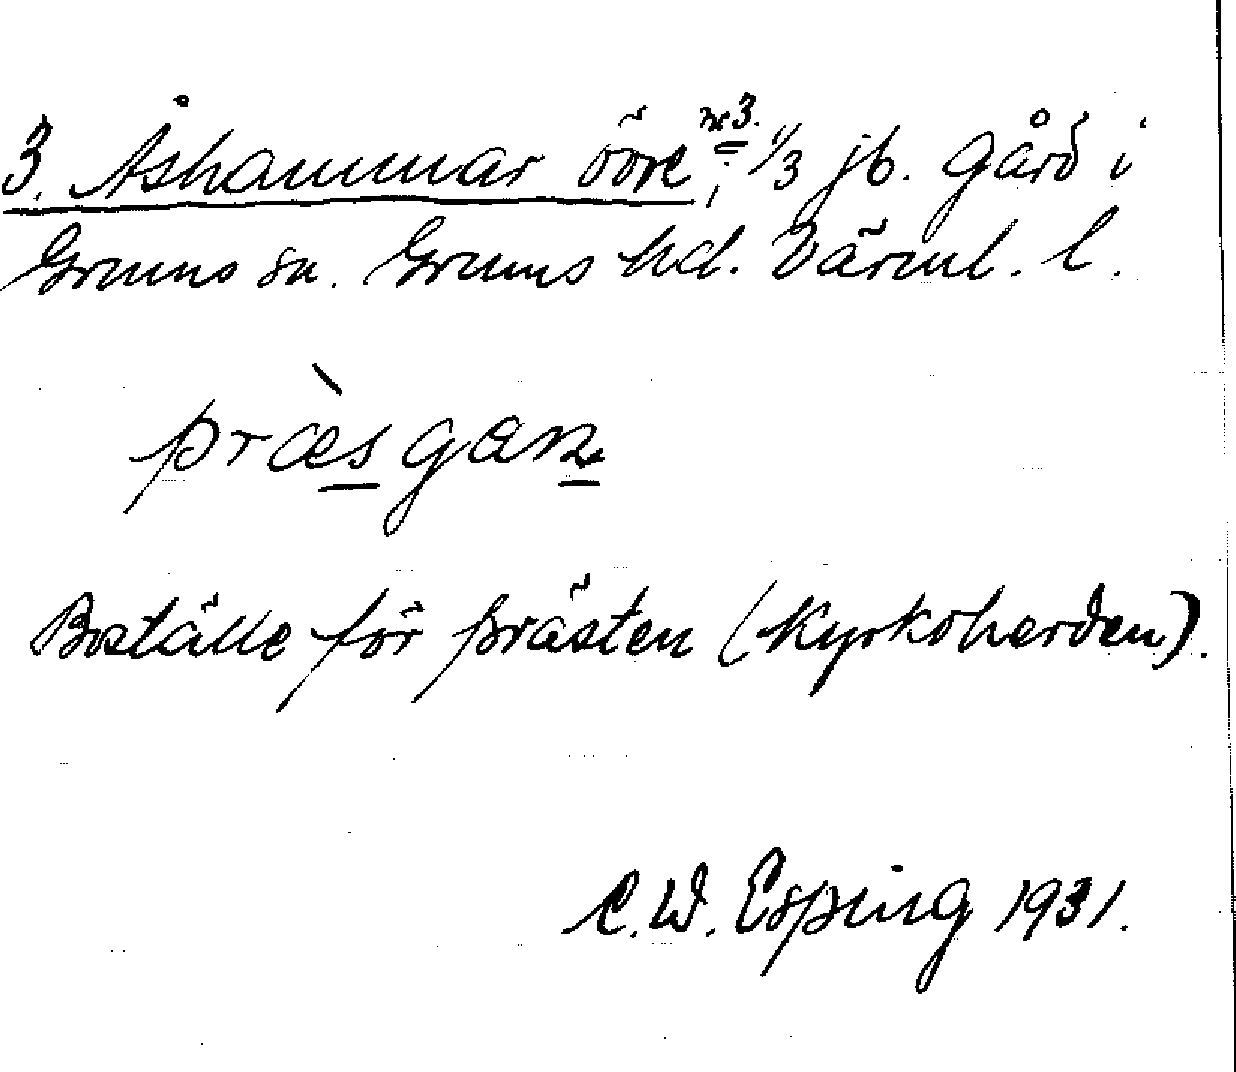 3. Åshammar övre, nr 3. 1/3 jb. Gård i
Grums sn. Grums hd. Värml. l.
præ̀sgaɳ
Boställe för prästen (Kyrkoherden).
C.W. Esping 1931.